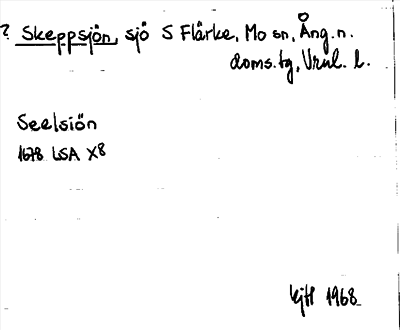 ? Skeppsjön, sjö S Flärke, Mo sn, Ång. n.
doms. tg, Vnul. l.
Seelsiön
1678 LSA X8
1968